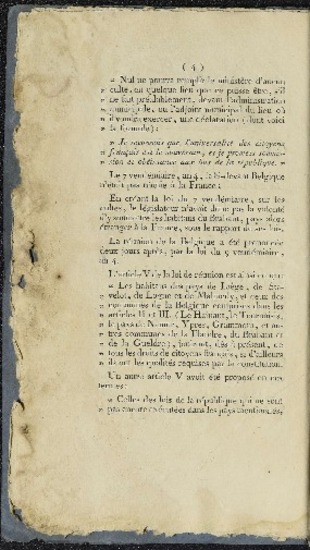 ( 4 )
« Nul ne pourra remplir le ministère d'aucun
« culte, en quelque lieu que ce puisse être, s'il
« ne fait préalablement, devant l'administration
« municipale, ou l'adjoint municipal du lieu où
« il voudra exercer, une déclaration (dont voici
« la formule):
« Je reconnois que l'universalité des citoyens
« français est le souverain, et je promets soumis-
« sion et obéissance aux lois de la république. »
Le 7 vendémiaire, an 4, la Belgique
n'étoit pas réunie à la France:
En créant la loi du 7 vendémiaire, sur les
cultes, le législateur n'avoit donc pas la volonté
d'y soumettre les habitans du Brabant, pays alors
étranger à la France, sous le rapport de ses lois.
La réunion de la Belgique a été prononcée
deux jours après, par la loi du 9 vendémiaire,
an 4.
L'article V de la loi de réunion est ainsi conçu:
« Les habitans des pays de Liège, de Sta-
« velot, de Logne et de Malmedy, et ceux des
« communes de la Belgique comprises dans les
« articles II et III. (Le Hainaut, le Tournaisis,
« le pays de Namur, Ypres, Grammont, et au-
« tres communes de la Flandre, du Brabant et
« de la Gueldre); jouiront, dès à présent, de
« tous les droits de citoyens français, si d'ailleurs
« ils ont les qualités requises par la constitution.
Un autre article V avoit été proposé en ces
termes:
« Celles des lois de la république qui ne sont
« pas encore exécutées dans les pays mentionnés,